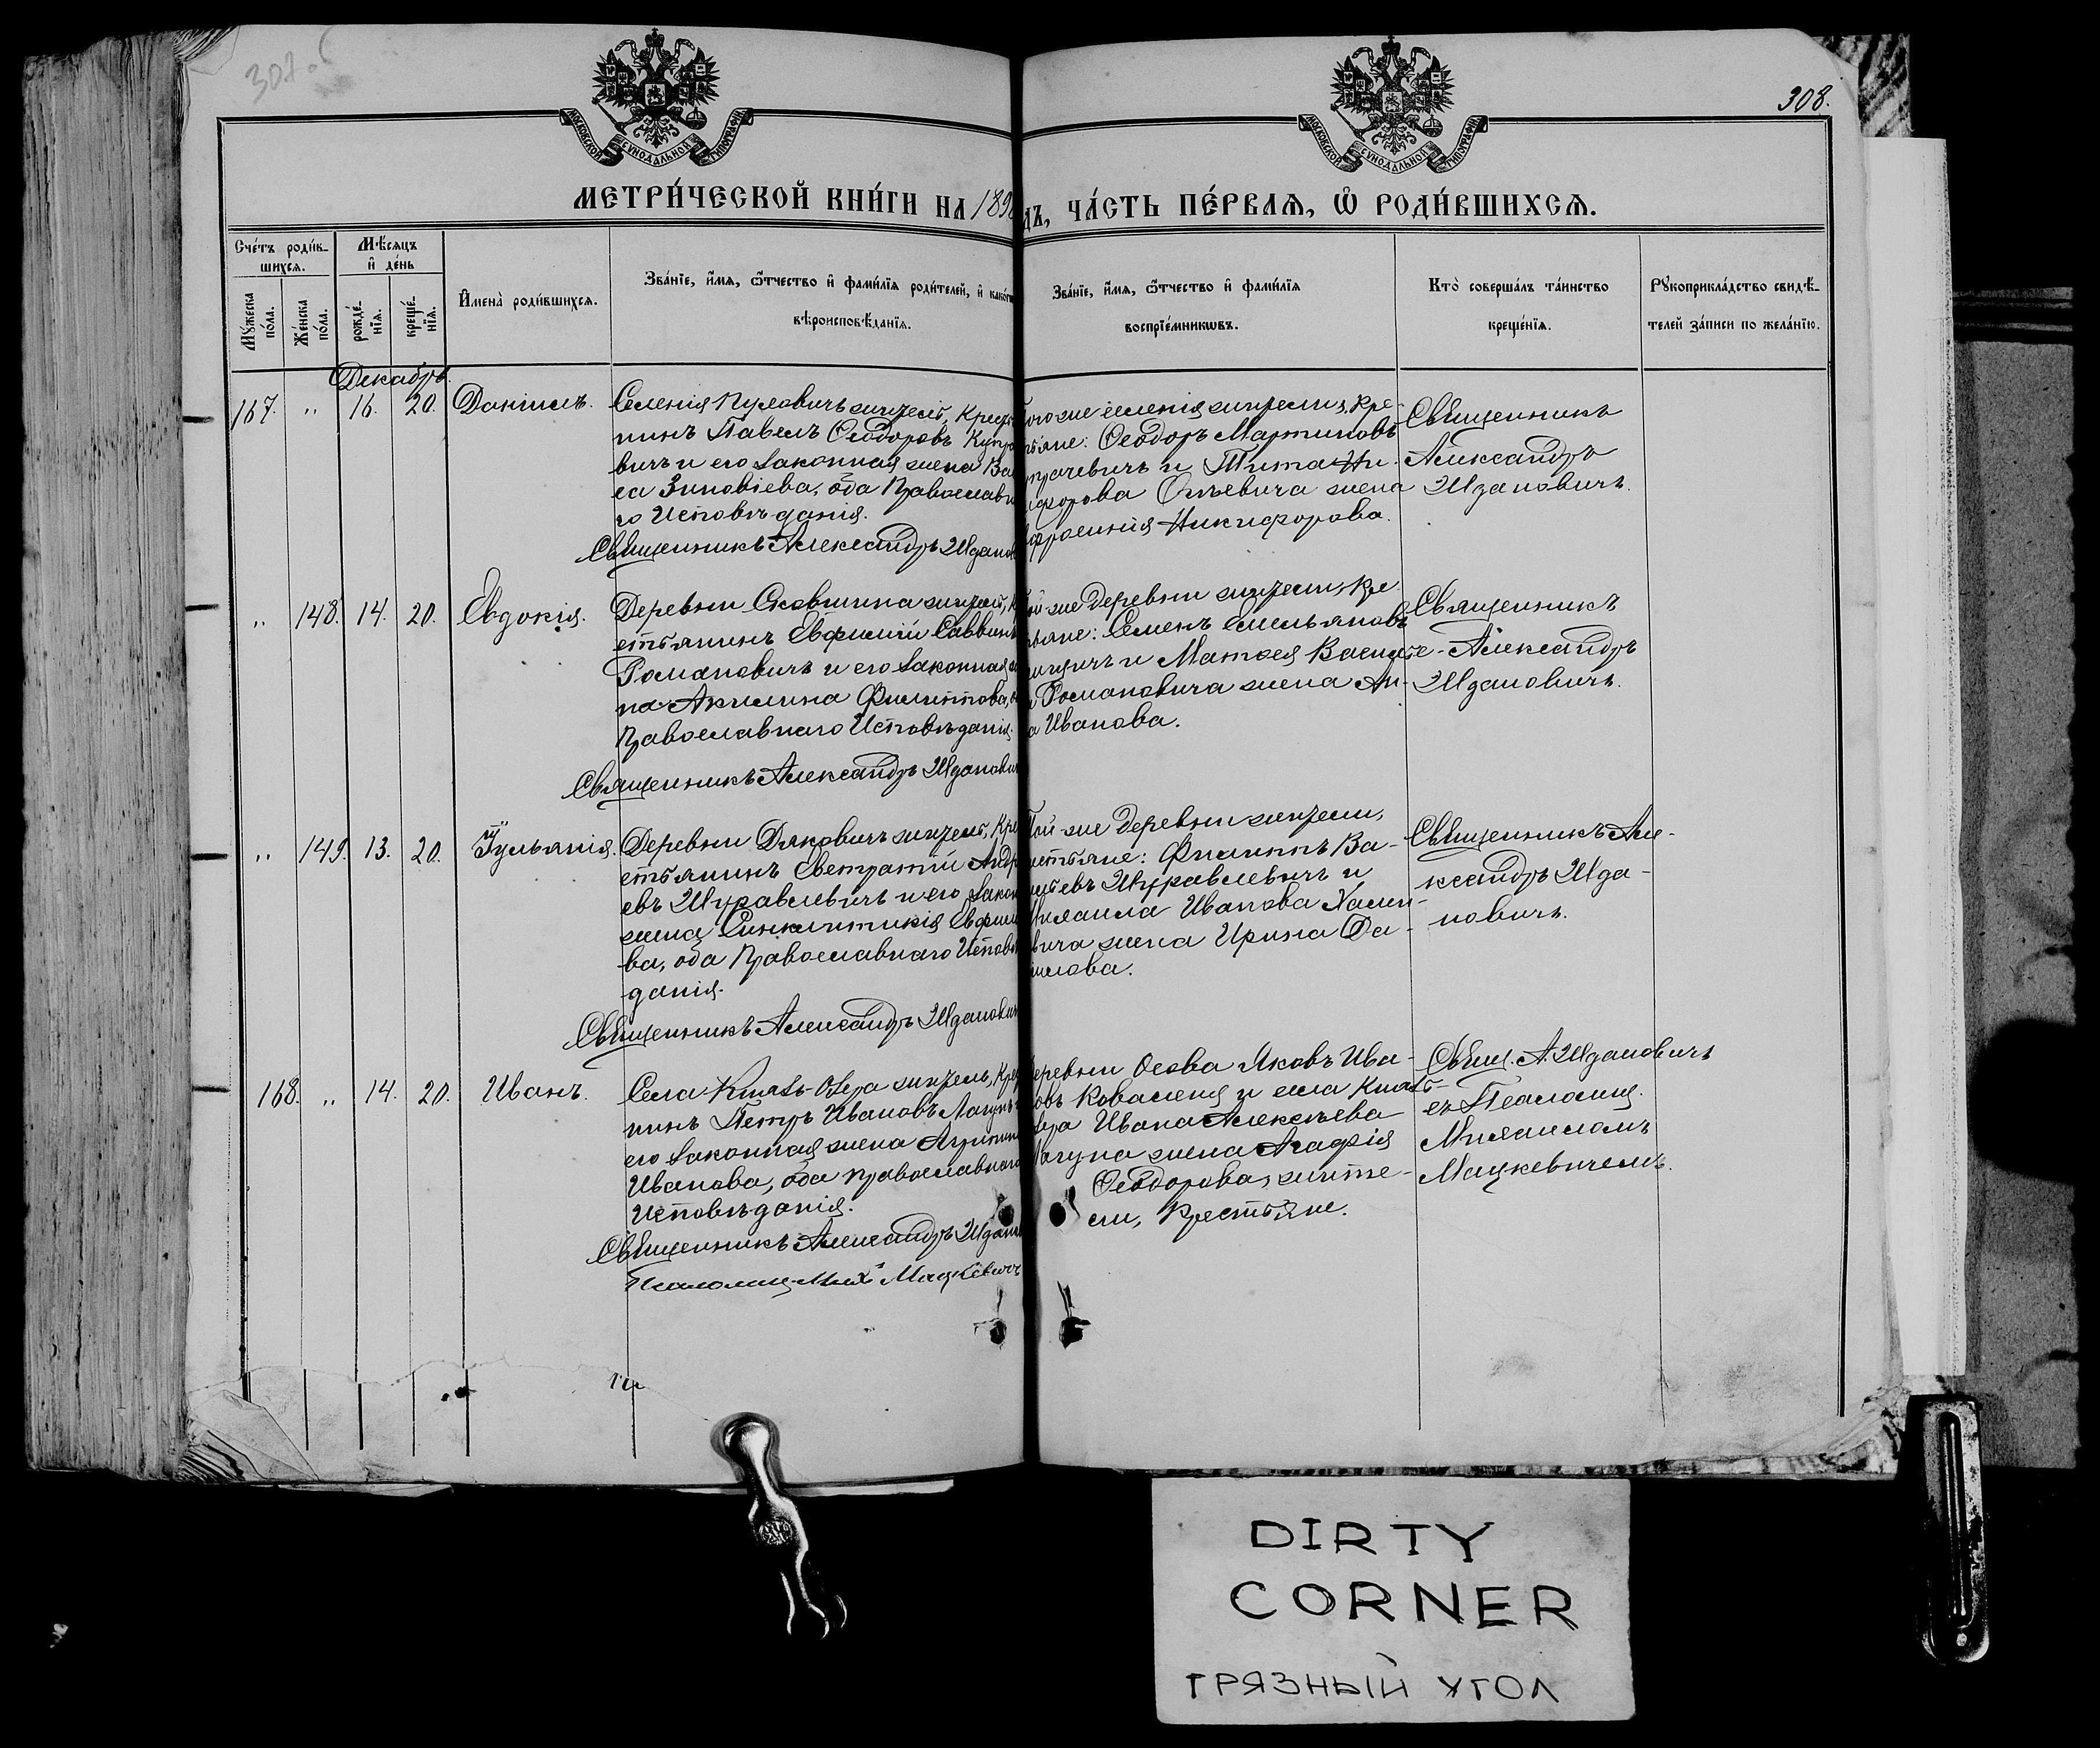 307об
308.
МОСКОВСКОЙ СѴНОДАЛЬНОЙ ТИПОГРАФІИ
МОСКОВСКОЙ СѴНОДАЛЬНОЙ ТИПОГРАФІИ
МЕТРИ́ЧЕСКОЙ КНИ́ГИ НА 1898
ДЪ, ЧА́СТЬ ПЕ́РВАѦ, Ѡ҆ РОДИ́ВШИХСѦ.
Сче́тъ роди́в-
шихсѧ.
Мѣ́сѧцъ
и҆ де́нь
Мꙋ́жеска
по́ла.
Же́нска
по́ла.
рожде́-
нїѧ.
креще́-
нїѧ.
И҆мена̀ роди́вшихсѧ.
Зва́нїе, и҆́мѧ, ѻ҆́тчество и҆ фами́лїѧ роди́телей, и҆ како́гѡ
вѣроисповѣ́данїѧ.
Зва́нїе, и҆́мѧ, ѻ҆́тчество и҆ фами́лїѧ
воспрїе́мникѡвъ.
Кто̀ соверша́лъ та́инство
креще́нїѧ.
Рꙋкоприкла́дство свидѣ́-
телей за́писи по жела́нїю.
Декабрь.
167. „ 16. 20. Даніилъ.
Селенія Пуховичъ житель, Крест
нинъ Павелъ Ѳеодоровъ
вичъ и его законная жена Ва
са Зиновіева, оба Православн
го Исповѣданія.
Священникъ Александръ Жданов
того же селенія жители, Кре-
тьяне: Ѳеодоръ Мартиновъ
и Тита Ни-
кифорова жена
Никифорова.
Священникъ
Александръ
Ждановичъ.
„ 148. 14. 20. Евдокія.
Деревни житель, К
естьянинъ Евфимій Саввинъ
Романовичъ и его законная
на Акилина Филиппова,
Православнаго Исповѣданія.
Священникъ Александръ Жданович
той-же деревни жители, Кре
тьяне: Семенъ Емельяновъ
и Матѳея Василье-
Романовича жена Ан-
а Иванова.
Священникъ
Александръ
Ждановичъ.
„ 149. 13. 20. Іульянія.
Деревни Дяковичъ житель, Кре
естьянинъ Евстратій Андре
евъ Журавлевичъ и его закон
жена Синклитикія Евфимо
ва, оба Православнаго Исповѣ
данія.
Священникъ Александръ Жданович
Той-же деревни жители,
естьяне: Филиппъ Ва-
сильевъ Журавлевичъ и
Михаила Иванова
вича жена Ирина Да-
ніилова.
Священникъ Але-
ксандръ Жда-
новичъ.
168. „ 14. 20. Иванъ.
Села Князь-Озера житель, Крес
нинъ Петръ Ивановъ Лагунъ
его законная жена
Иванова, оба православнаго
Исповѣданія.
Священникъ Александръ Ждано
Псаломщ. Мих. Мацкевичъ
Деревни Осова Яковъ Ива-
новъ Коваленя и села Князь-
Озера Ивана Алексѣева
Лагуна жена Агафія
Ѳеодорова, жите-
ли, Крестьяне.
Свящ. А. Ждановичъ
съ Псаломщ.
Михаиломъ
Мацкевичемъ.
DIRTY
CORNER
ГРЯЗНЫЙ УГОЛ